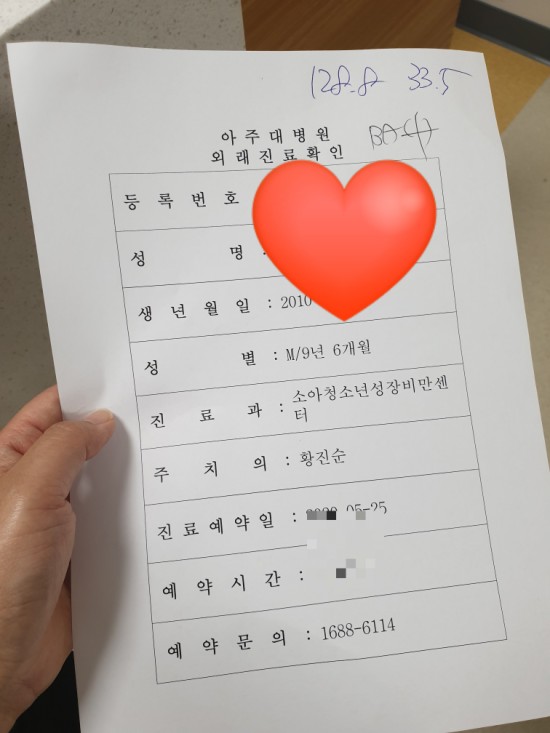 128.8 33.5
아주대병원
외래진료확인
등 록 번 호
성 명 :
생 년 월 일 : 2010
성 별 : M/9년 6개월
진 료 과 : 소아청소년성장비만센
터
주 치 의 : 황진순
진료예약일 : 05-25
예 약 시 간 :
예 약 문 의 : 1688-6114